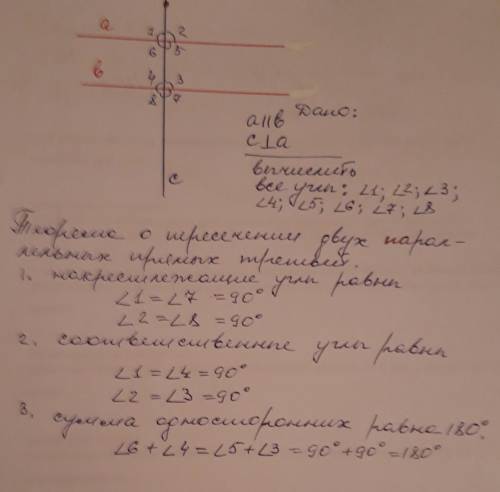 a
1 2
6 5
в
4 3
8 7
c
Дано:
a||в
c⊥a
вычислить
все углы: ∠1; ∠2; ∠3;
∠4; ∠5; ∠6; ∠7; ∠8
Теорема о пересечении двух парал-
лельных прямых третьей.
1. накрестлежащие углы равны
∠1 = ∠7 = 90°
∠2 = ∠8 = 90°
2. соответственные углы равны
∠1 = ∠4 = 90°
∠2 = ∠3 = 90°
3. сумма односторонних равна 180°.
∠6 + ∠4 = ∠5 + ∠3 = 90° + 90° = 180°